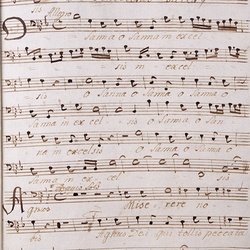 Allegro
Osanna o Sanna in excel
sis in excel
sis o Sanna o Sanna o
Sanna in excel sis o Sanna o San
na in excelsis o Sanna o Sanna
Sanna in excel sis
Agnus Dei
Agnus Misere rere no
bis Agnus Dei qui tollis peccata